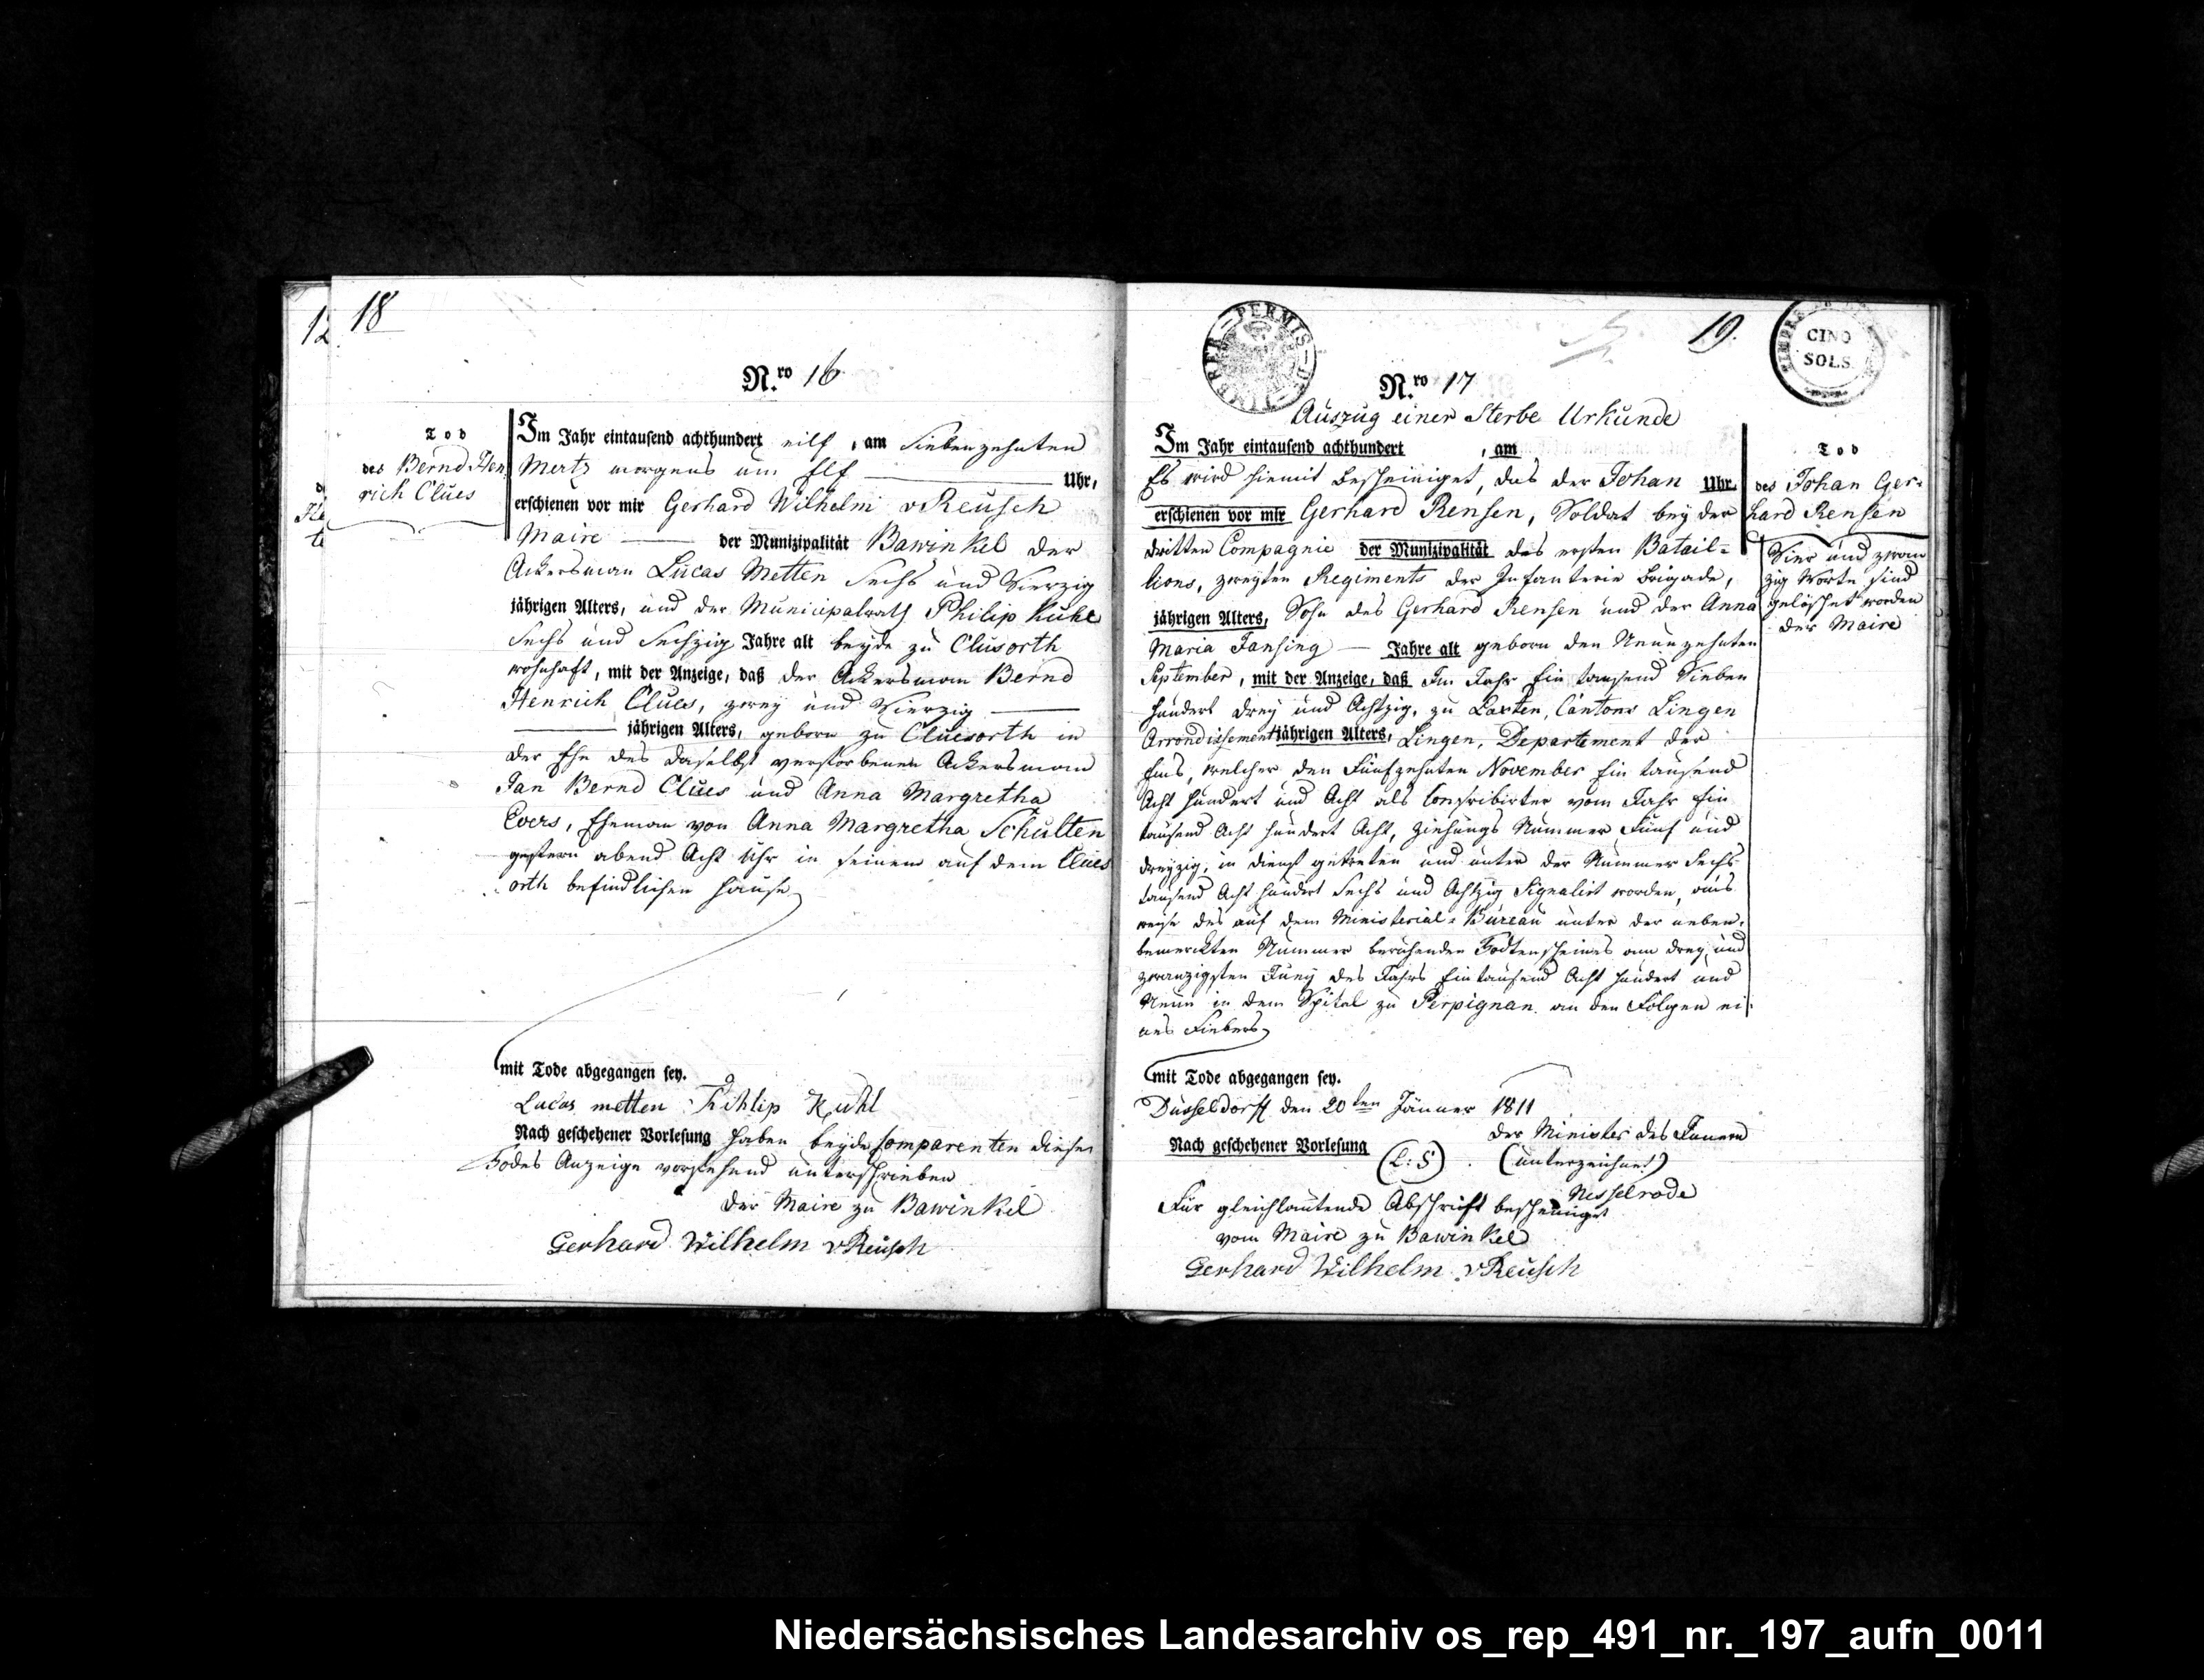 12
18
N.ro 16
Tod
des Bernd Hen
rich Clües
Im Jahr eintausend achthundert eilf, am Siebenzehnten
Mertz morgens um Elf Uhr,
erschienen vor mir Gerhard Wilhelm vReusch
Maire der Munizipalität Bawinkel der
Ackersman Lucas Metten Sechs und Vierzig
jährigen Alters, und der Municipalrath Philip Kuhl
Sechs und Sechzig Jahre alt beyde zu Clusorth
wohnhaft, mit der Anzeige, daß der Ackersman Bernd
Henrich Clües, zwey und Vierzig
jährigen Alters, geboren zu Clüesorth in
der Ehe des daselbst verstorbenen Ackersman
Jan Bernd Clües und Anna Margretha
Evers, Eheman von Anna Margretha Schulten
gestern abend Acht Uhr in seinem auf dem Clües
orth befindlichen Hause
mit Tode abgegangen sey.
Lucas metten Kuhl
Nach geschehener Vorlesung haben beyde Comparenten diese
Todes Anzeige vorstehend unterschrieben
Der Maire zu Bawinkel
Gerhard Wilhelm vReusch
19.
CINQ
SOLS
N.ro 17
Auszug einer Sterbe Urkunde
Im Jahr eintausend achthundert , am
Es wird hiemit bescheiniget, das der Johan Uhr,
erschienen vor mir Gerhard Rensen, Soldat bey der
dritten Compagnie der Munizipalität des ersten Batail=
lions, zweyten Regiments der Infanterie Brigade,
jährigen Alters, Sohn des Gerhard Rensen und der Anna
Maria Jansing Jahre alt geboren den Neunzehnten
September, mit der Anzeige, daß Im Jahr Ein tausend Sieben
hundert drey und Achtzig, zu Laxten, Cantons Lingen
Arrondissement jährigen Alters, Lingen, Departement der
Ems, welcher den Fünfzehnten November Ein tausend
Acht hundert und Acht als Conscribirter vom Jahr Ein
tausend Acht hundert Acht, Ziehungs Nummer Fünf und
dreyzig, in dienst getreten und unter der Nummer Sechs
tausend Acht hundert Sechs und Achtzig Signalirt worden, aus
weise des auf dem Ministerial=Büreau unter der neben=
bemerckten Nummer beruhenden Todtenscheines am drey und
zwanzigsten Juny des Jahrs Ein tausend Acht hundert und
Neun in dem Spital zu Perpignan an den Folgen ei=
nes Fiebers
mit Tode abgegangen sey.
Düsseldorff den 20ten Jänner 1811
Der Minister des Innern
Nach geschehener Vorlesung (L:S) (unterzeichnet)
Nesselrode
Für gleichlautende Abschrift bescheiniget
vom Maire zu Bawinkel
Gerhard Wilhelm vReusch
Tod
des Johan Ger=
hard Rensen
Vier und zwan
zig Worte sind
gelöschet worden
Der Maire
Niedersächsisches Landesarchiv os_rep_491_nr._197_aufn_0011